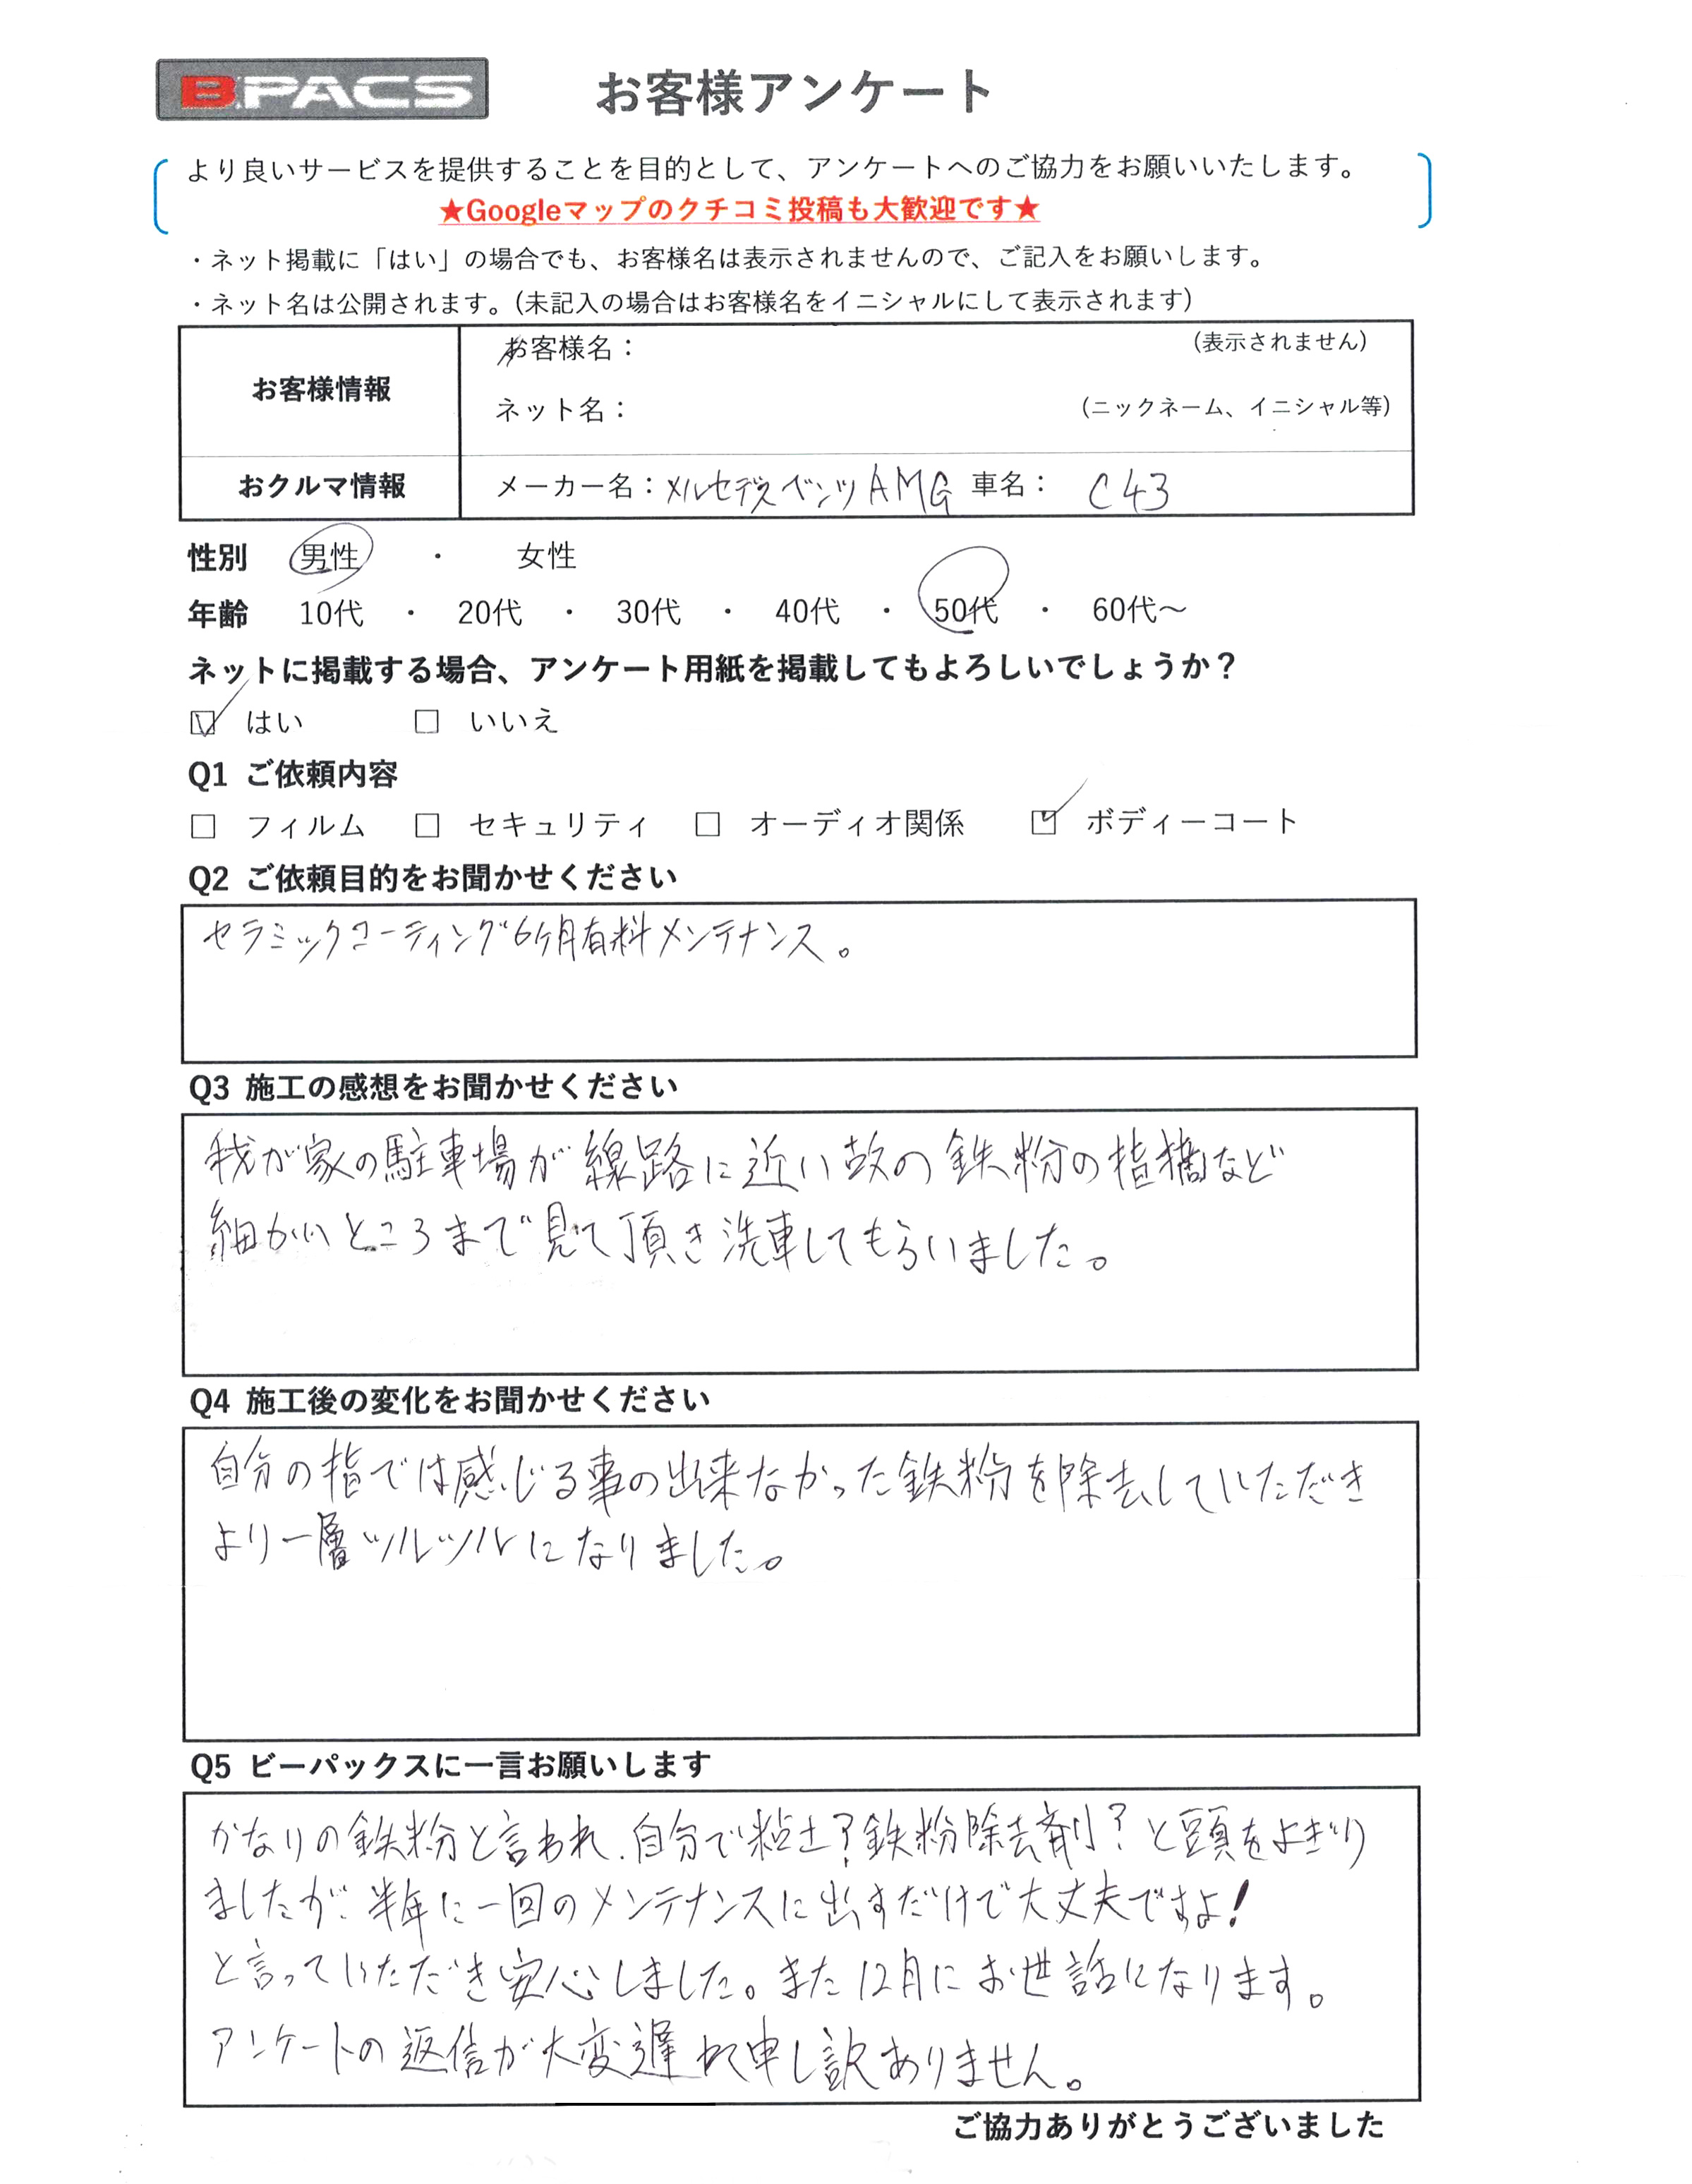 B-PACS お客様アンケート
より良いサービスを提供することを目的として、アンケートへのご協力をお願いいたします。
★Googleマップのクチコミ投稿も大歓迎です★
・ネット掲載に「はい」の場合でも、お客様名は表示されませんので、ご記入をお願いします。
・ネット名は公開されます。(未記入の場合はお客様名をイニシャルにして表示されます)
お客様情報
お客様名： (表示されません)
ネット名： (ニックネーム、イニシャル等)
おクルマ情報 メーカー名：メルセデスベンツAMG 車名： C43
性別 男性 ・ 女性
年齢 10代 ・ 20代 ・ 30代 ・ 40代 ・ 50代 ・ 60代～
ネットに掲載する場合、アンケート用紙を掲載してもよろしいでしょうか？
☑ はい □ いいえ
Q1 ご依頼内容
□ フィルム □ セキュリティ □ オーディオ関係 ☑ ボディーコート
Q2 ご依頼目的をお聞かせください
セラミックコーティング6ケ月有料メンテナンス。
Q3 施工の感想をお聞かせください
我が家の駐車場が線路に近い故の鉄粉の指摘など
細かいところまで見て頂き洗車してもらいました。
Q4 施工後の変化をお聞かせください
自分の指では感じる事の出来なかった鉄粉を除去していただき
より一層ツルツルになりました。
Q5 ビーパックスに一言お願いします
かなりの鉄粉と言われ、自分で粘土？鉄粉除去剤？と頭をよぎり
ましたが、半年に一回のメンテナンスに出すだけで大丈夫ですよ！
と言っていただき安心しました。また12月にお世話になります。
アンケートの返信が大変遅れて申し訳ありません。
ご協力ありがとうございました